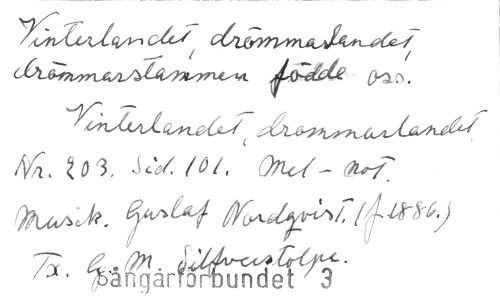 Vinterlandet, drömmarlandet,
drömmarstammen födde oss.
Vinterlandet, drommarlandet
Nr. 203. Sid. 101. Mel - not.
Musik. Gustaf Nordqvist. (f. 1886.)
Tx. G. M. Silfverstolpe.
Sångarförbundet 3